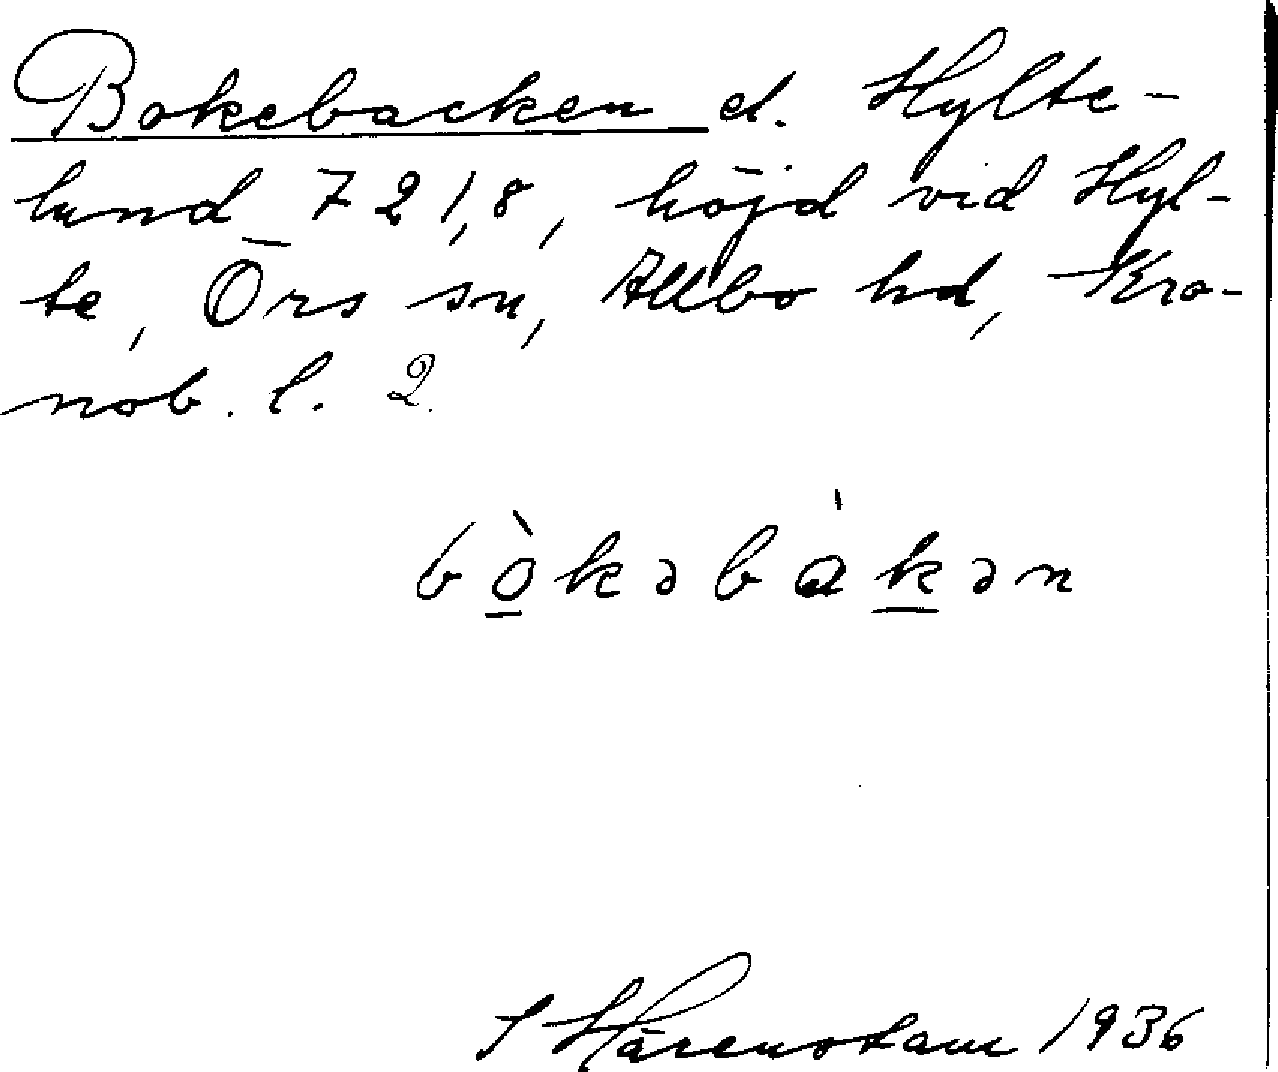 Bokebacken el. Hylte-
lund 721,8, höjd vid Hyl-
te, Örs sn, Allbo hd, Kro-
nob. l. 2.
bò̲kəba̍k̲ən
S Härenstam 1936